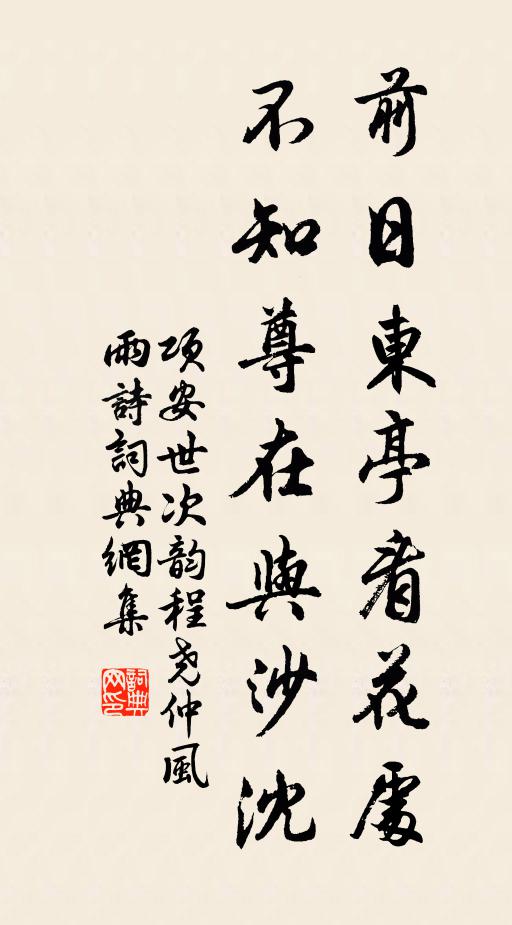 前日東亭看花處
不知尊在與沙沈
項安世次韵程尧仲風
雨詩詞典網集
詞典
网印